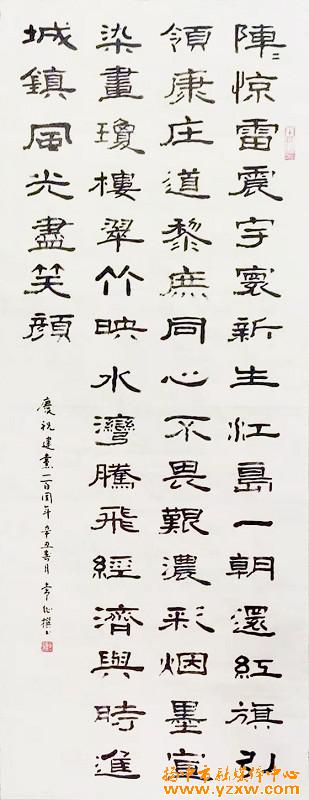 陣〻惊雷震宇寰新生江島一朝還紅旗引
領康庄道黎庶同心不畏艱濃彩烟墨宣
染畫瓊樓翠竹映水灣騰飛經濟與時進
城鎮風光盡笑顔
慶祝建黨一百周年 辛丑
扬中市融媒体中心
www.yzxw.com